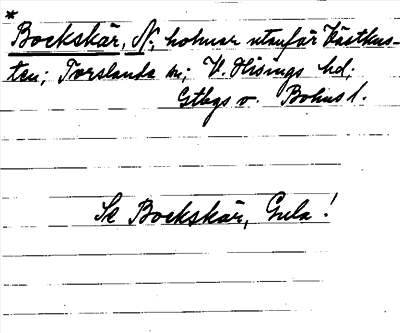 *
Bockskär, N; holmar utanför Västkus-
ten; Torslanda sn; V. Hisings hd;
Gtbgs o. Bohus l.
Se Bockskär, Gula!